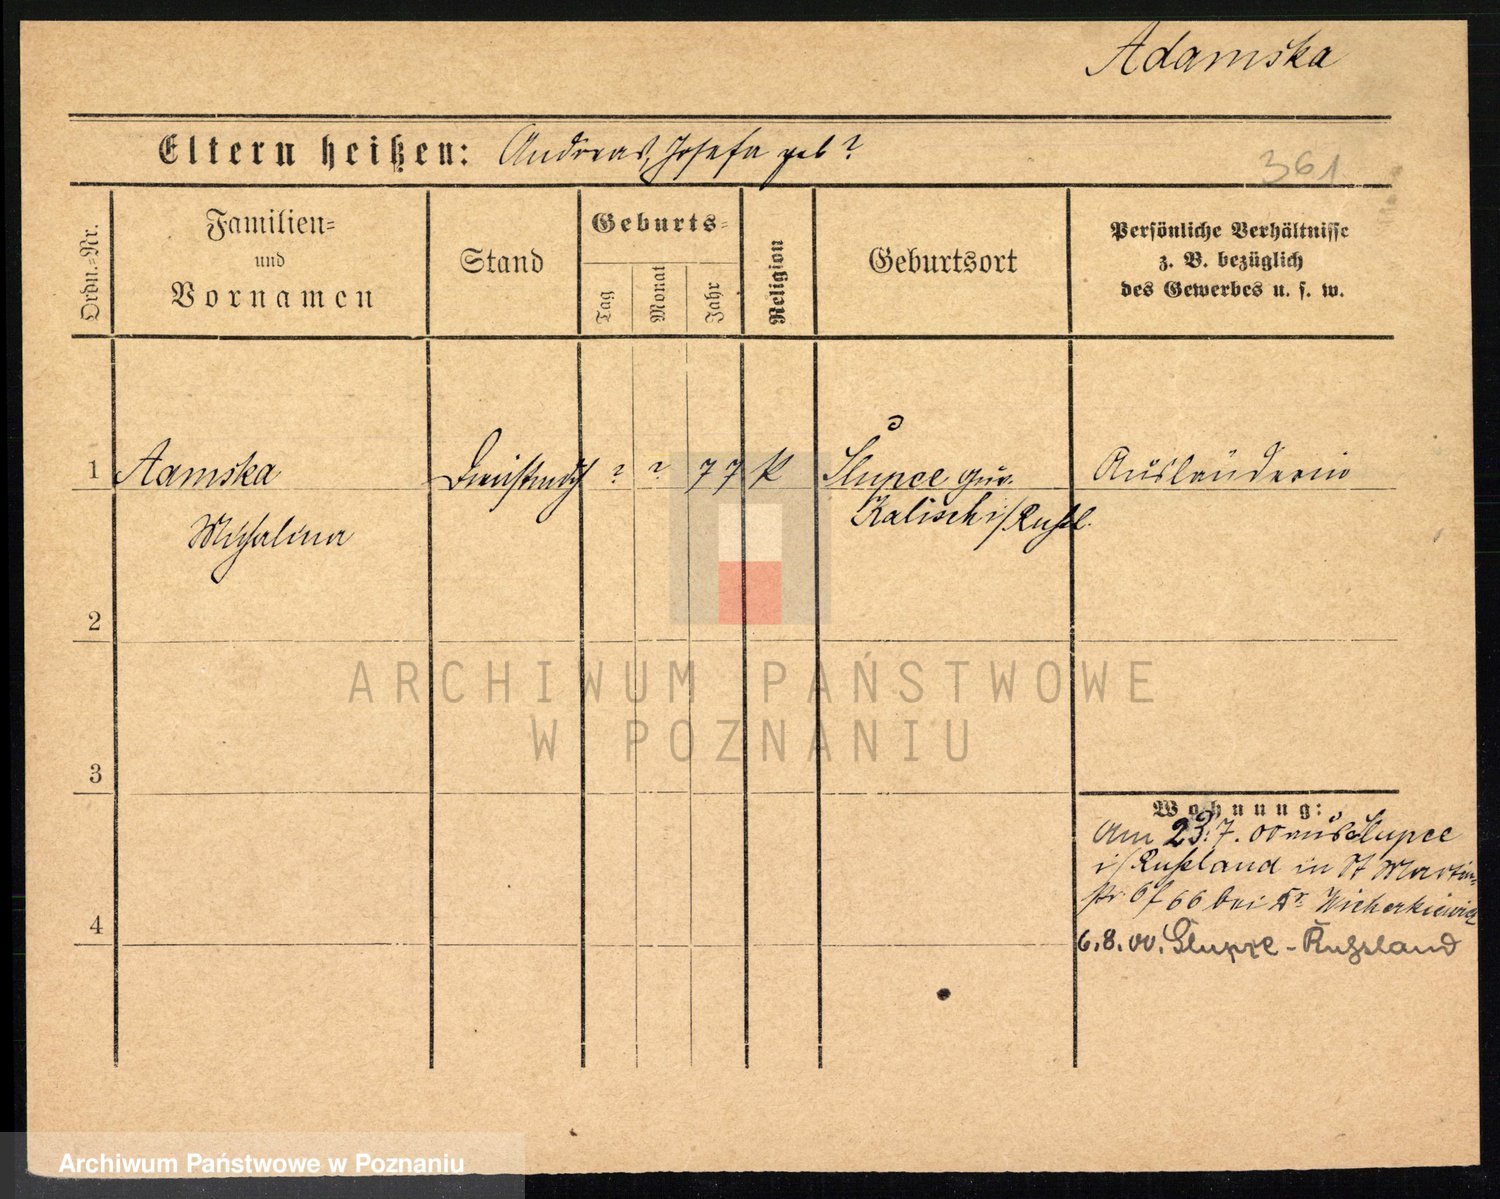 Adamska
Eltern heißen: Andreas, Josefa geb ?
361
Ordn.-Nr.
Familien-
und
Vornamen
Stand
Geburts-
Tag
Monat
Jahr
Religion
Geburtsort
Persönliche Verhältnisse
z. B. bezüglich
des Gewerbes u. s. w.
1 Aamska Dienstmdch ? ? 77 K Slupce Guv. Ausländerin
Michalina Kalisch i/Rußl.
2
ARCHIWUM PAŃSTWOWE
W POZNANIU
3
Wohnung:
Am 23.7.00 aus Slupce
i/Rußland in St Martin-
str. 66 bei Dr Wicherkiewicz
4
6.8.00. Slupze - Rußsland
Archiwum Państwowe w Poznaniu